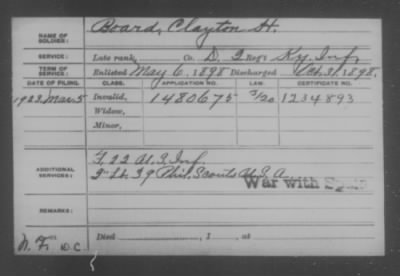 NAME OF SOLDIER: Board, Clayton H.
SERVICE: Late rank, Co. D, 2 Reg't Ky. Inf.
TERM OF SERVICE: Enlisted May 6, 1898 Discharged Oct. 31, 1898.
DATE OF FILING. CLASS. APPLICATION NO. LAW. CERTIFICATE NO.
1923 Mar 5 Invalid, 1480675 1234893
Widow,
Minor,
ADDITIONAL SERVICES: F. 22 U.S. Inf.
2" Lt. 39 Phil. Scouts U.S.A.
War with Spain
REMARKS:
Died , 1 , at
D.C.